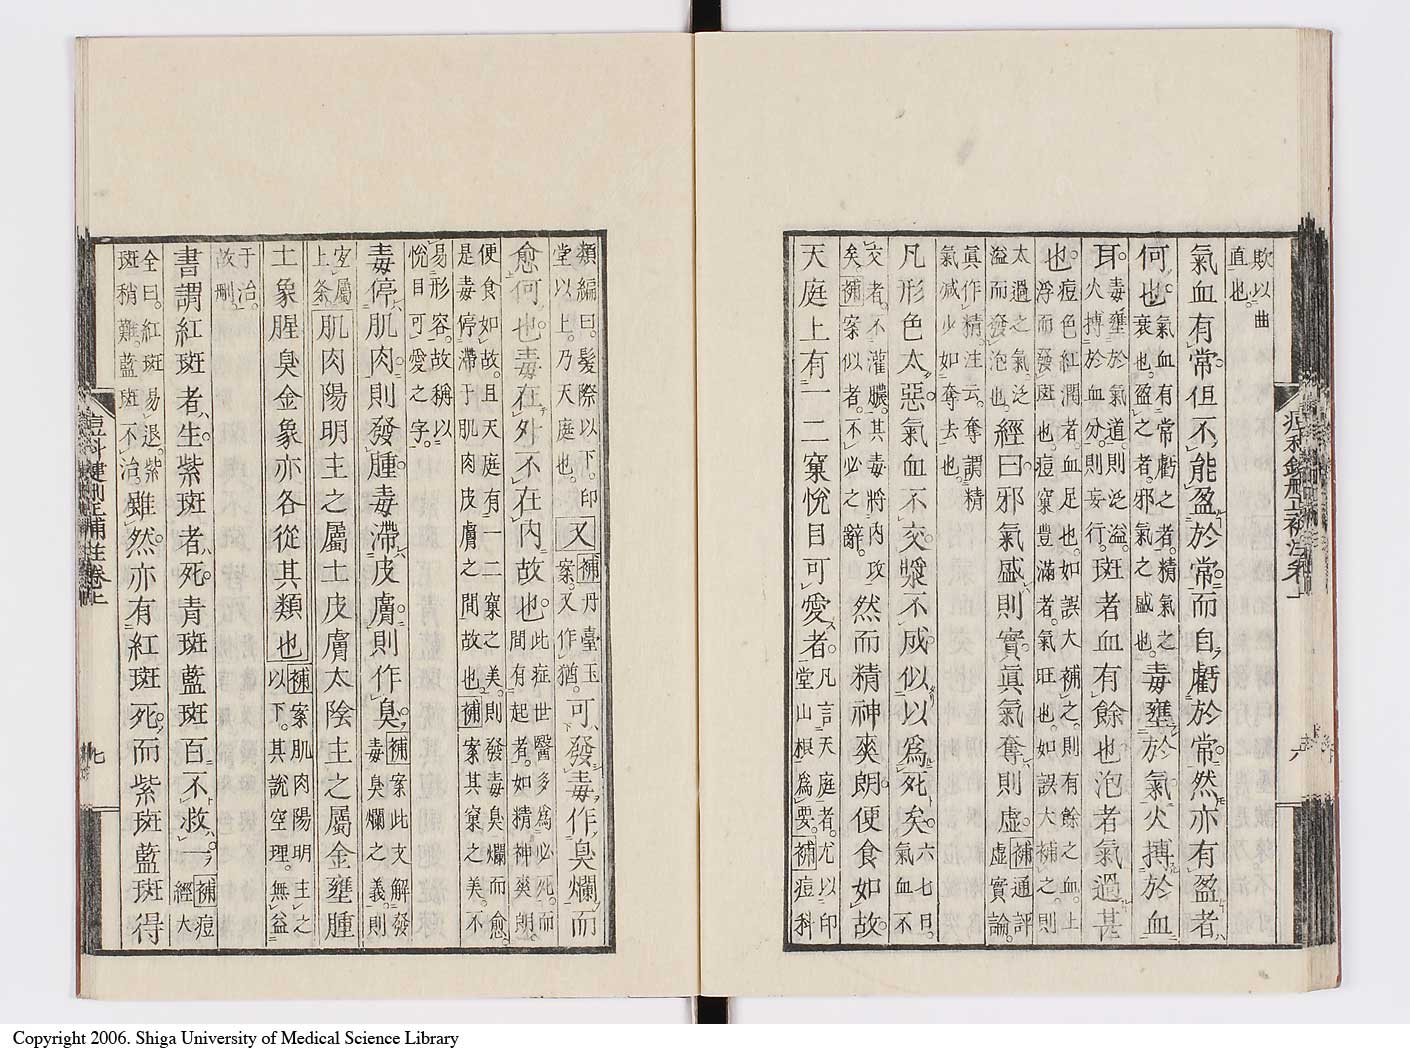 欺以曲
直也。
氣血有常。但不能盈於常。而自虧於常。然亦有盈者
何也。氣血有常虧之者。精氣之
衰也。盈之者。邪氣之盛也。毒壅於氣。火搏於血
耳。毒壅於氣道。則泛溢。
火搏於血分。則妄行。斑者血有餘也。泡者氣過甚
也。痘色紅潤者。血足也。如誤大補之。則有餘之血。上
浮而發斑也。痘窠豐滿者。氣旺也。如誤大補之。則
太過之氣。泛
溢而發泡也。經曰。邪氣盛則實。眞氣奪則虛。補通評
虛實論。
眞作精。注云。奪謂精
氣減少如奪去也。
凡形色太惡。氣血不交。漿不成。似以爲死矣。六七日。
氣血不
交者。不灌膿。其毒將內攻
矣。補案似者。不必之辭。然而精神爽朗。便食如故。
天庭上有一二窠悅目可愛者。凡言天庭者。尤以印
堂山根爲要。補痘科
類編曰。髮際以下。印
堂以上。乃天庭也。又補丹臺玉
案。又作猶。可發毒作臭爛而
愈。何也。毒在外不在內故也。此症世醫多爲必死。而
間有起者。如精神爽朗。
便食如故。且天庭有一二窠之美。則發毒臭爛而愈。
是毒停滯于肌肉皮膚之間故也。補案其窠之美。不
易形容。故稱以
悅目可愛之字。
毒停肌肉。則發腫。毒滯皮膚。則作臭。補案此文解發
毒臭爛之義則
宜屬
上条肌肉陽明主之屬土皮膚太陰主之屬金壅腫
土象腥臭金象亦各從其類也補案肌肉陽明主之
以下。其說空理。無益
于治。
故刪
書謂紅斑者生。紫斑者死。青斑藍斑百不救一。補痘
經大
全曰。紅斑易退。紫
斑稍難。藍斑不治。雖然亦有紅斑死。而紫斑藍斑得
痘科鍵刪正補註卷上
六
痘科鍵刪正補註卷上
七
Copyright 2006. Shiga University of Medical Science Library